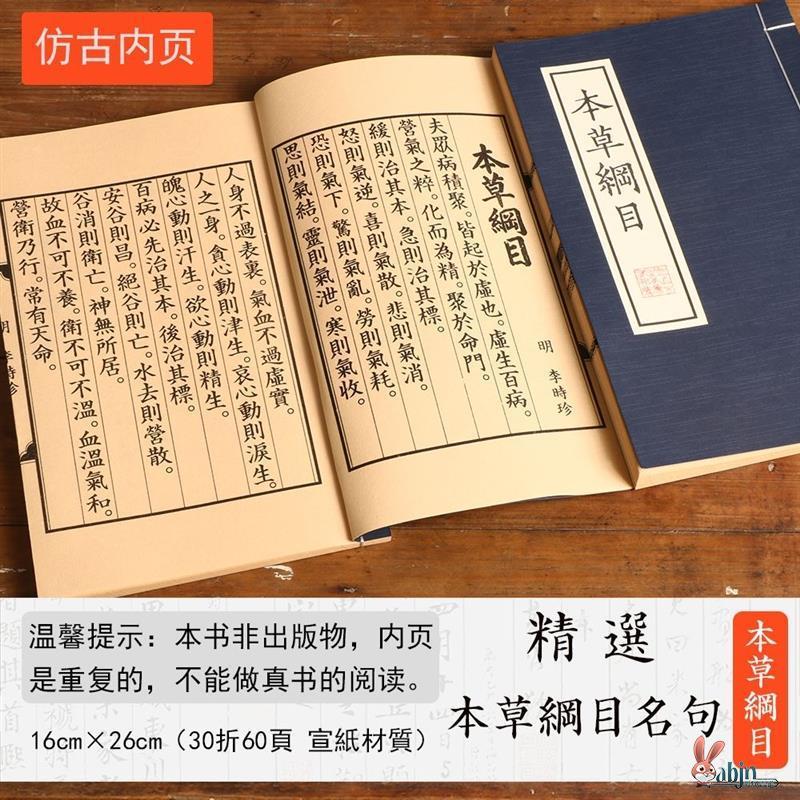 仿古内页
本草綱目
本草綱目
明 李時珍
夫眾病積聚。皆起於虛也。虛生百病。
營氣之粹。化而為精。聚於命門。
緩則治其本。急則治其標。
怒則氣逆。喜則氣散。悲則氣消。
恐則氣下。驚則氣亂。勞則氣耗。
思則氣結。靈則氣泄。寒則氣收。
人身不過表裏。氣血不過虛實。
人之一身。貪心動則津生。哀心動則淚生。
魄心動則汗生。欲心動則精生。
百病必先治其本。後治其標。
安谷則昌。絕谷則亡。水去則營散。
谷消則衛亡。神無所居。
故血不可不養。衛不可不溫。血溫氣和。
營衛乃行。常有天命。
明 李時珍
温馨提示：本书非出版物，内页
是重复的，不能做真书的阅读。
16cm×26cm（30折60頁 宣紙材質）
精選
本草綱目名句
本草綱目
abjn